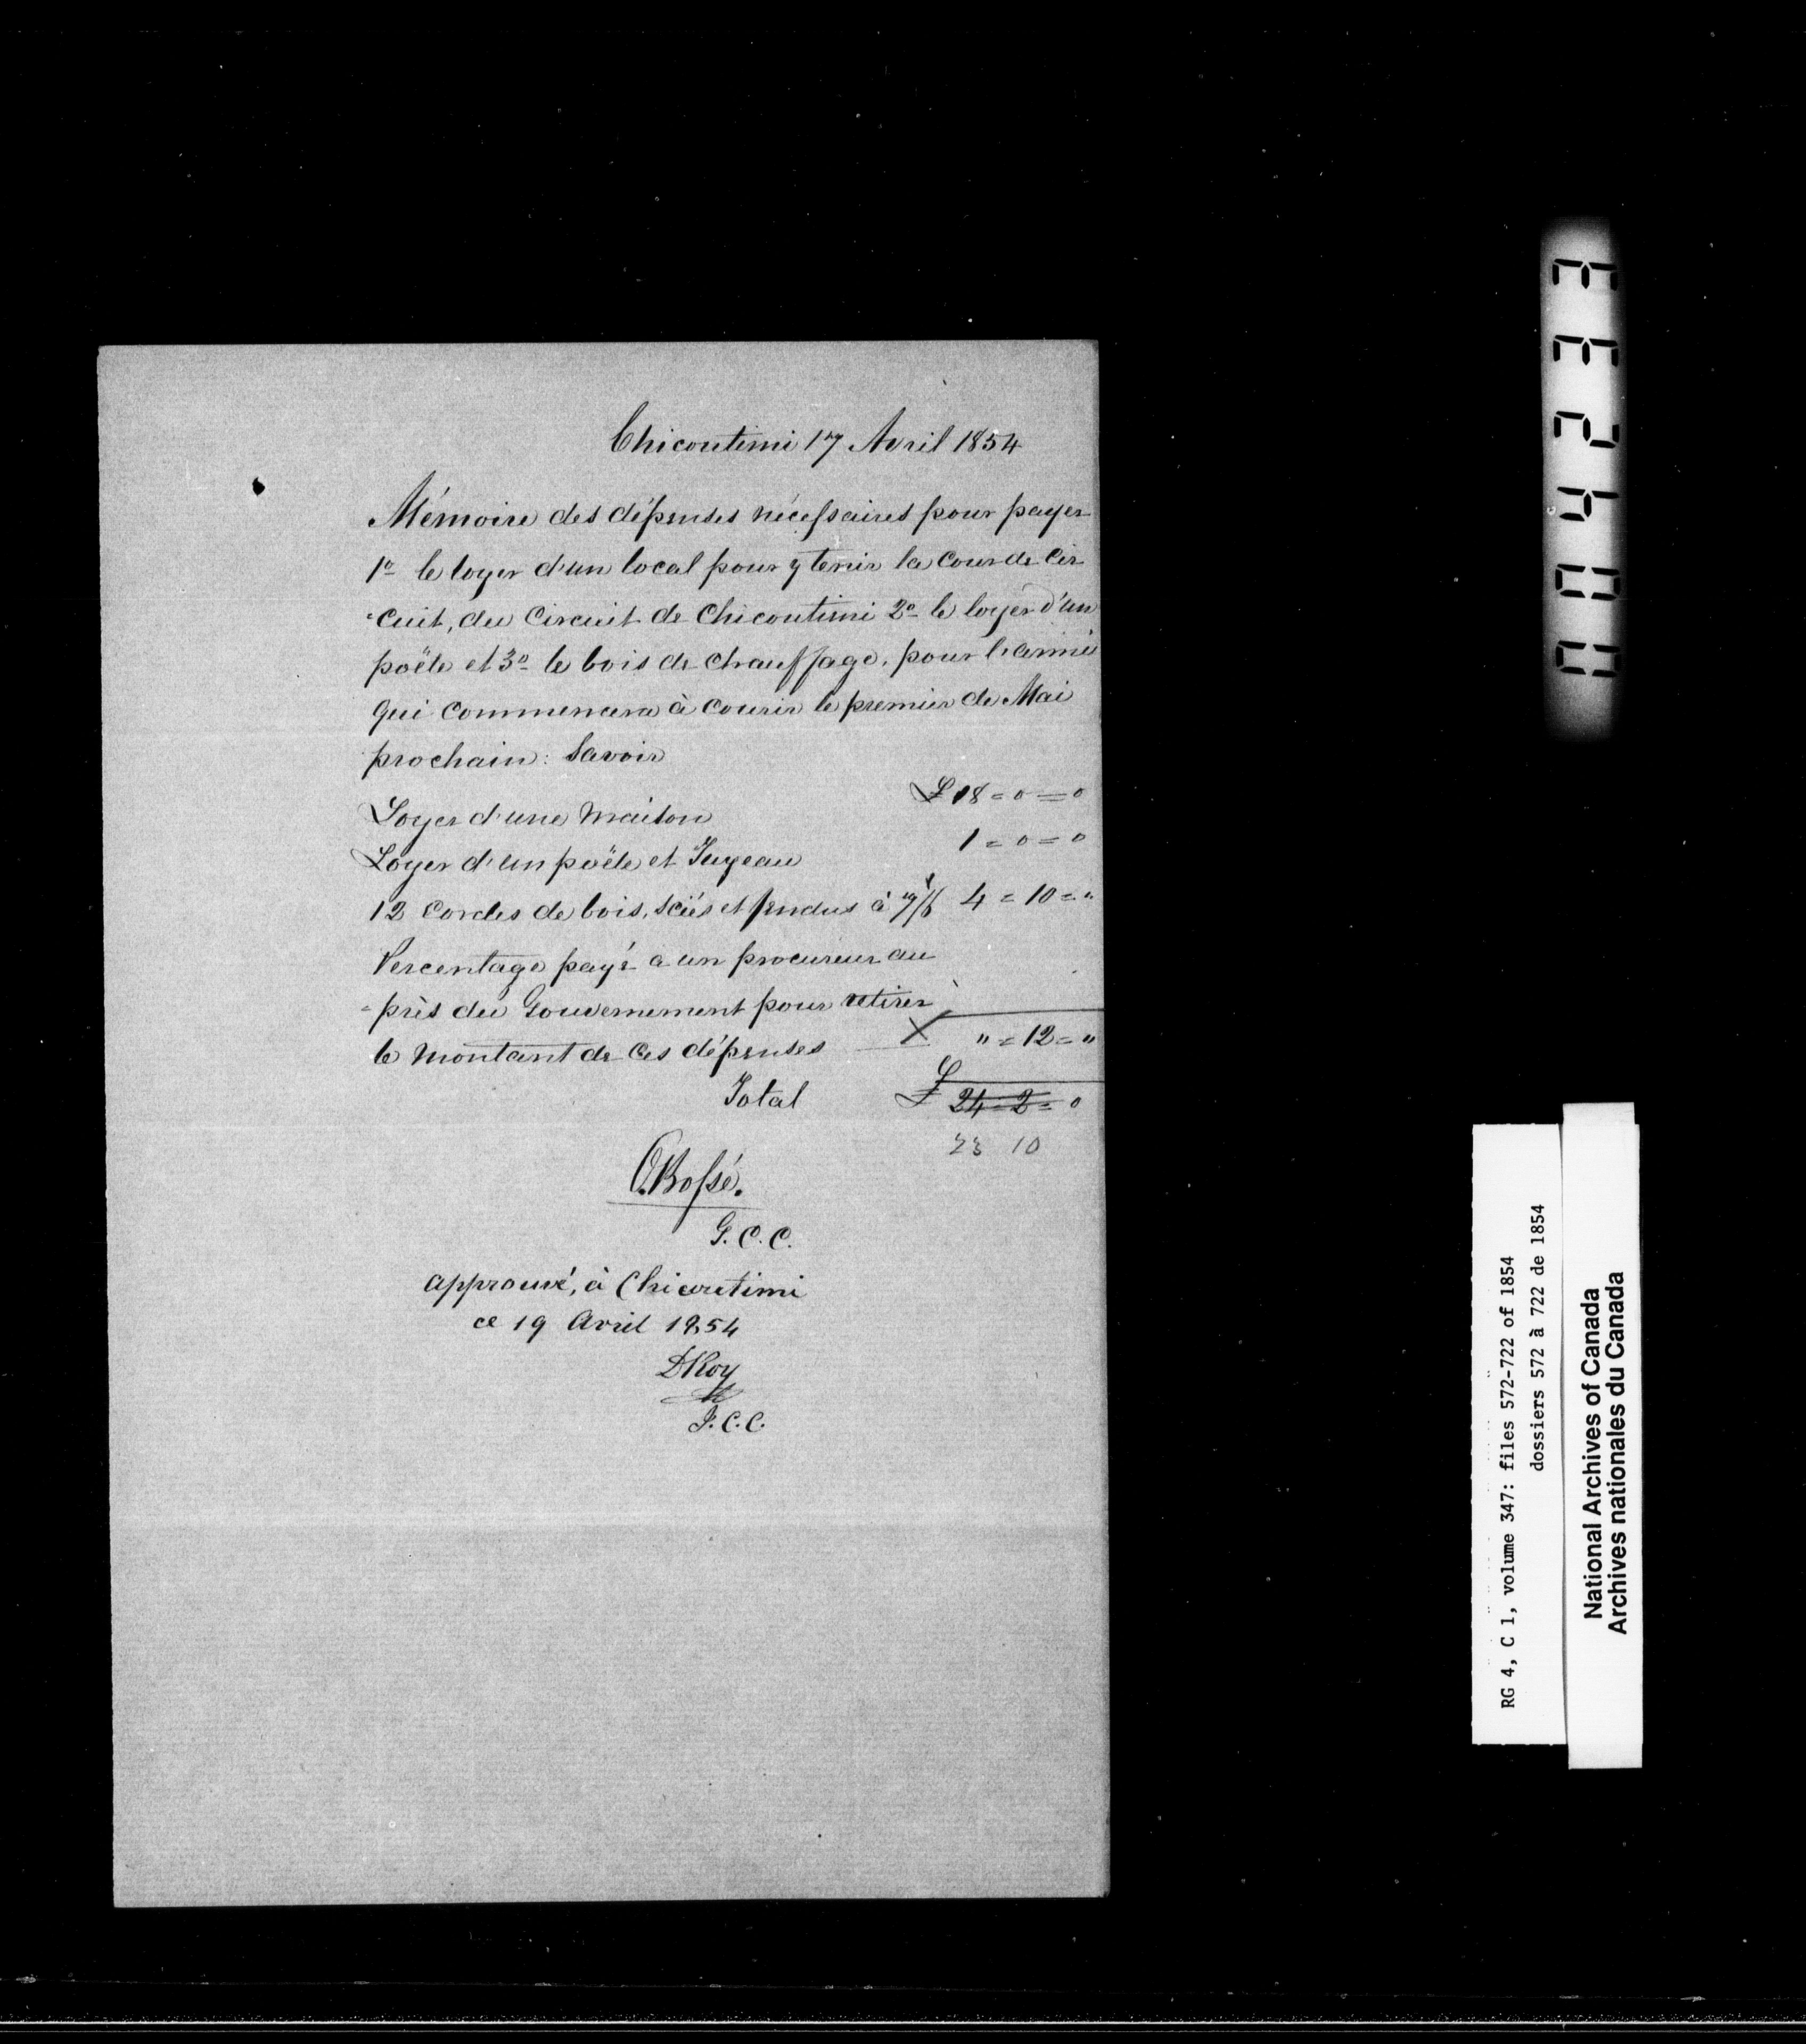 Chicoutimi 17 Avril 1854
Mémoire des dépenses nécessaires pour payer
1o le loyer d'un local pour y tenir la Cour de Cir
-cuit, du Circuit de Chicoutimi 2o le loyer d'un
poële et 3o le bois de chauffage, pour l'année
qui commencera à courir le premier de Mai
prochain: Savoir
Loyer d'une maison £18=0=0
Loyer d'un poële et Tuyeau 1=0=0
12 Cordes de bois, sciés et fendus à 7/6 4=10="
Percentage payé a un procureur au
-près du Gouvernement pour retirer
le montant de ces dépenses X "=12="
Total £ 24=2=0
23 10
O. Bossé.
G.C.C.
approuvé, à Chicoutimi
ce 19 Avril 1854
DRoy
J.C.C.
004233
RG 4, C 1, volume 347: files 572-722 of 1854
dossiers 572 à 722 de 1854
National Archives of Canada
Archives nationales du Canada